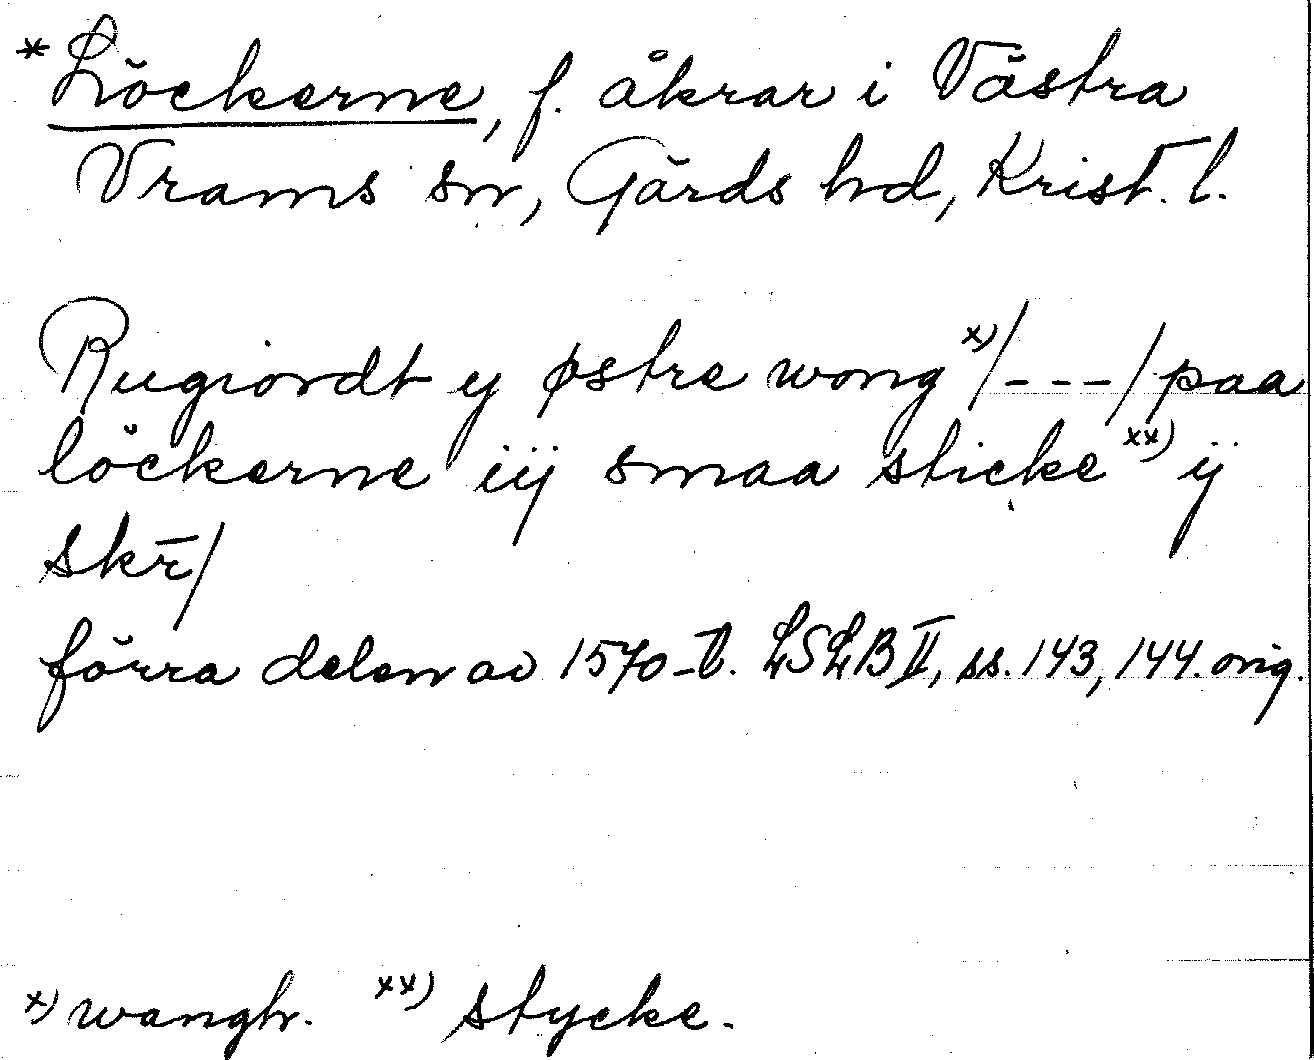 *Löckerne, f. åkrar i Västra
Vrams sn, Gärds hd, Krist. l.
Rugiordt y østre wong x)/---/ paa
löckerne iij smaa sticke xx) ij
skr̄/
förra delen av 1570-t. LSLB II, ss. 143, 144. orig.
x) wangh. xx) stycke.